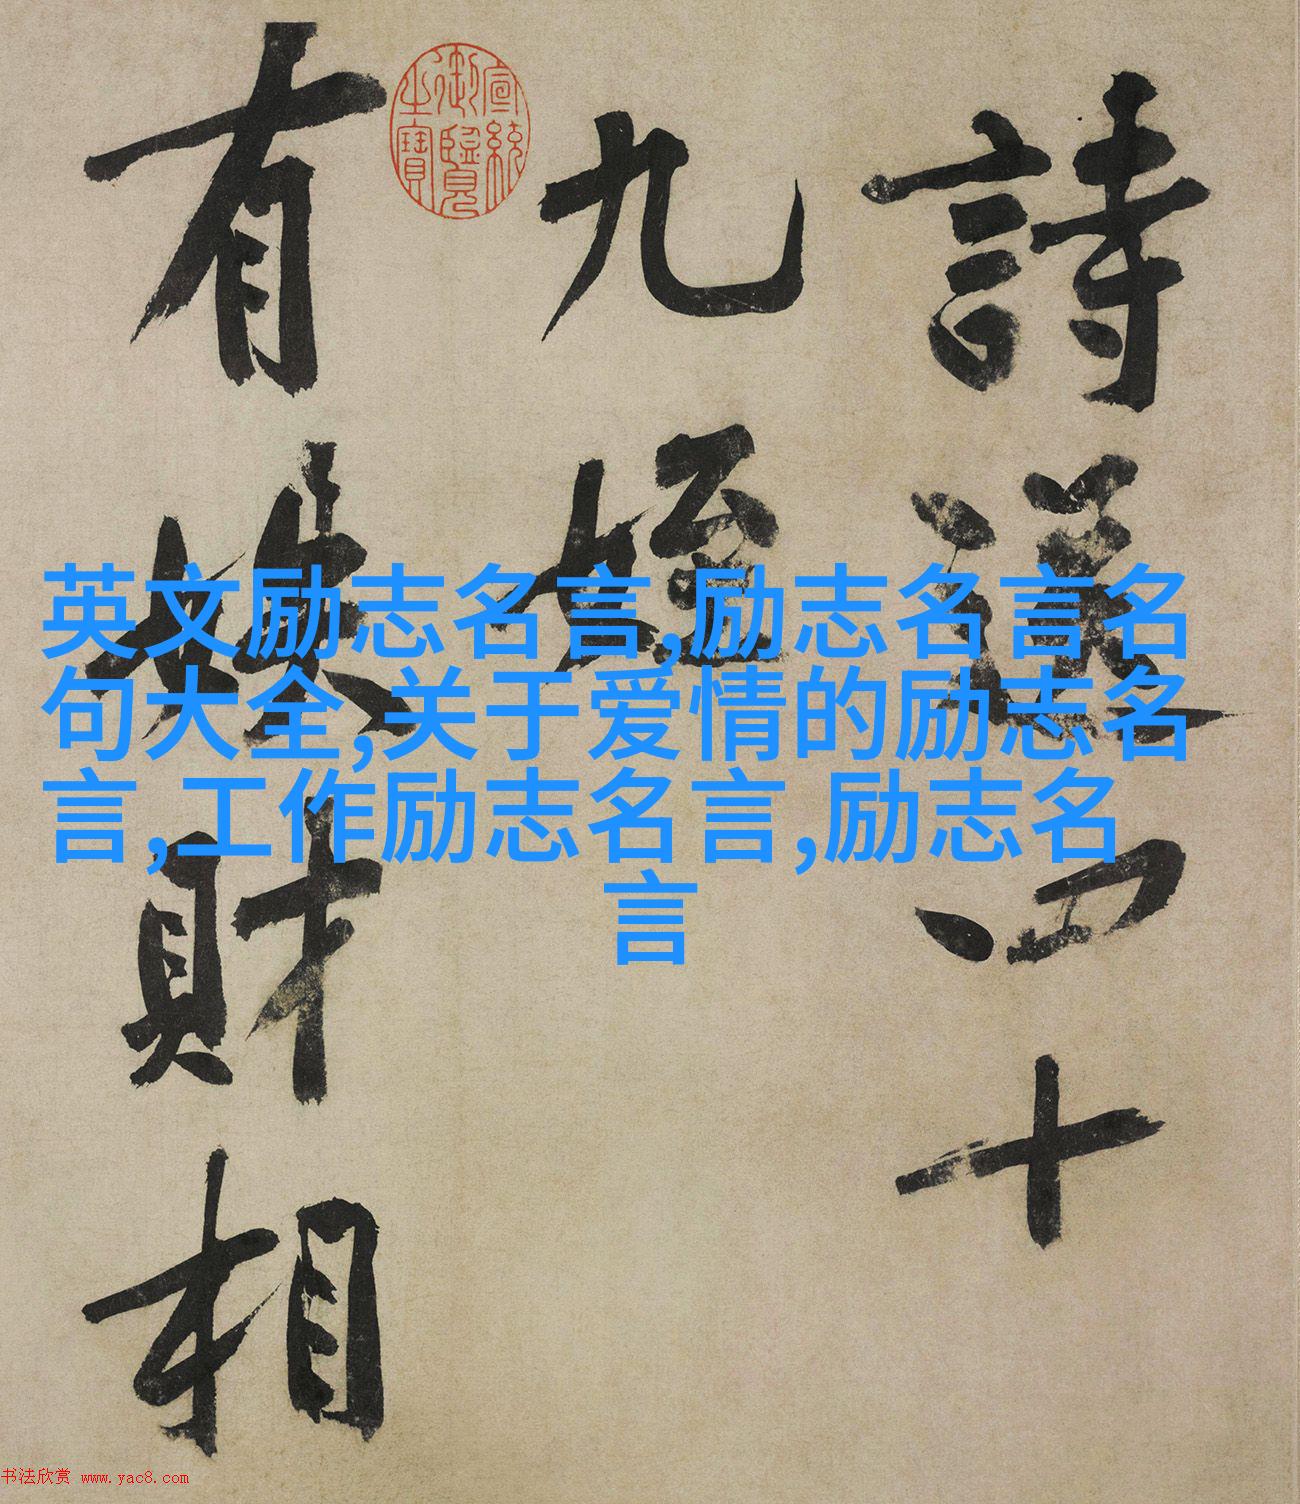 詩送四十
九姪
有妹財相
宣統
御覽
之寶
英文励志名言,励志名言名
句大全,关于爱情的励志名
言,工作励志名言,励志名
言
书法欣赏 www.yac8.com